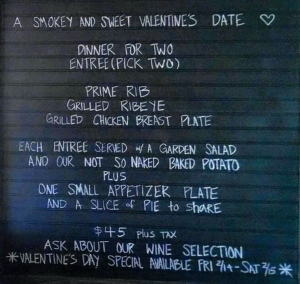 A SMOKEY AND SWEET VALENTINE'S DATE ♡
DINNER FOR TWO
ENTREE (PICK TWO)
PRIME RIB
GRILLED RIBEYE
GRILLED CHICKEN BREAST PLATE
EACH ENTREE SERVED w/ A GARDEN SALAD
AND OUR NOT SO NAKED BAKED POTATO
PLUS
ONE SMALL APPETIZER PLATE
AND A SLICE of PIE to SHARE
$45 PLUS TAX
ASK ABOUT OUR WINE SELECTION
*VALENTINE'S DAY SPECIAL AVAILABLE FRI 2/14 - SAT 2/15 *